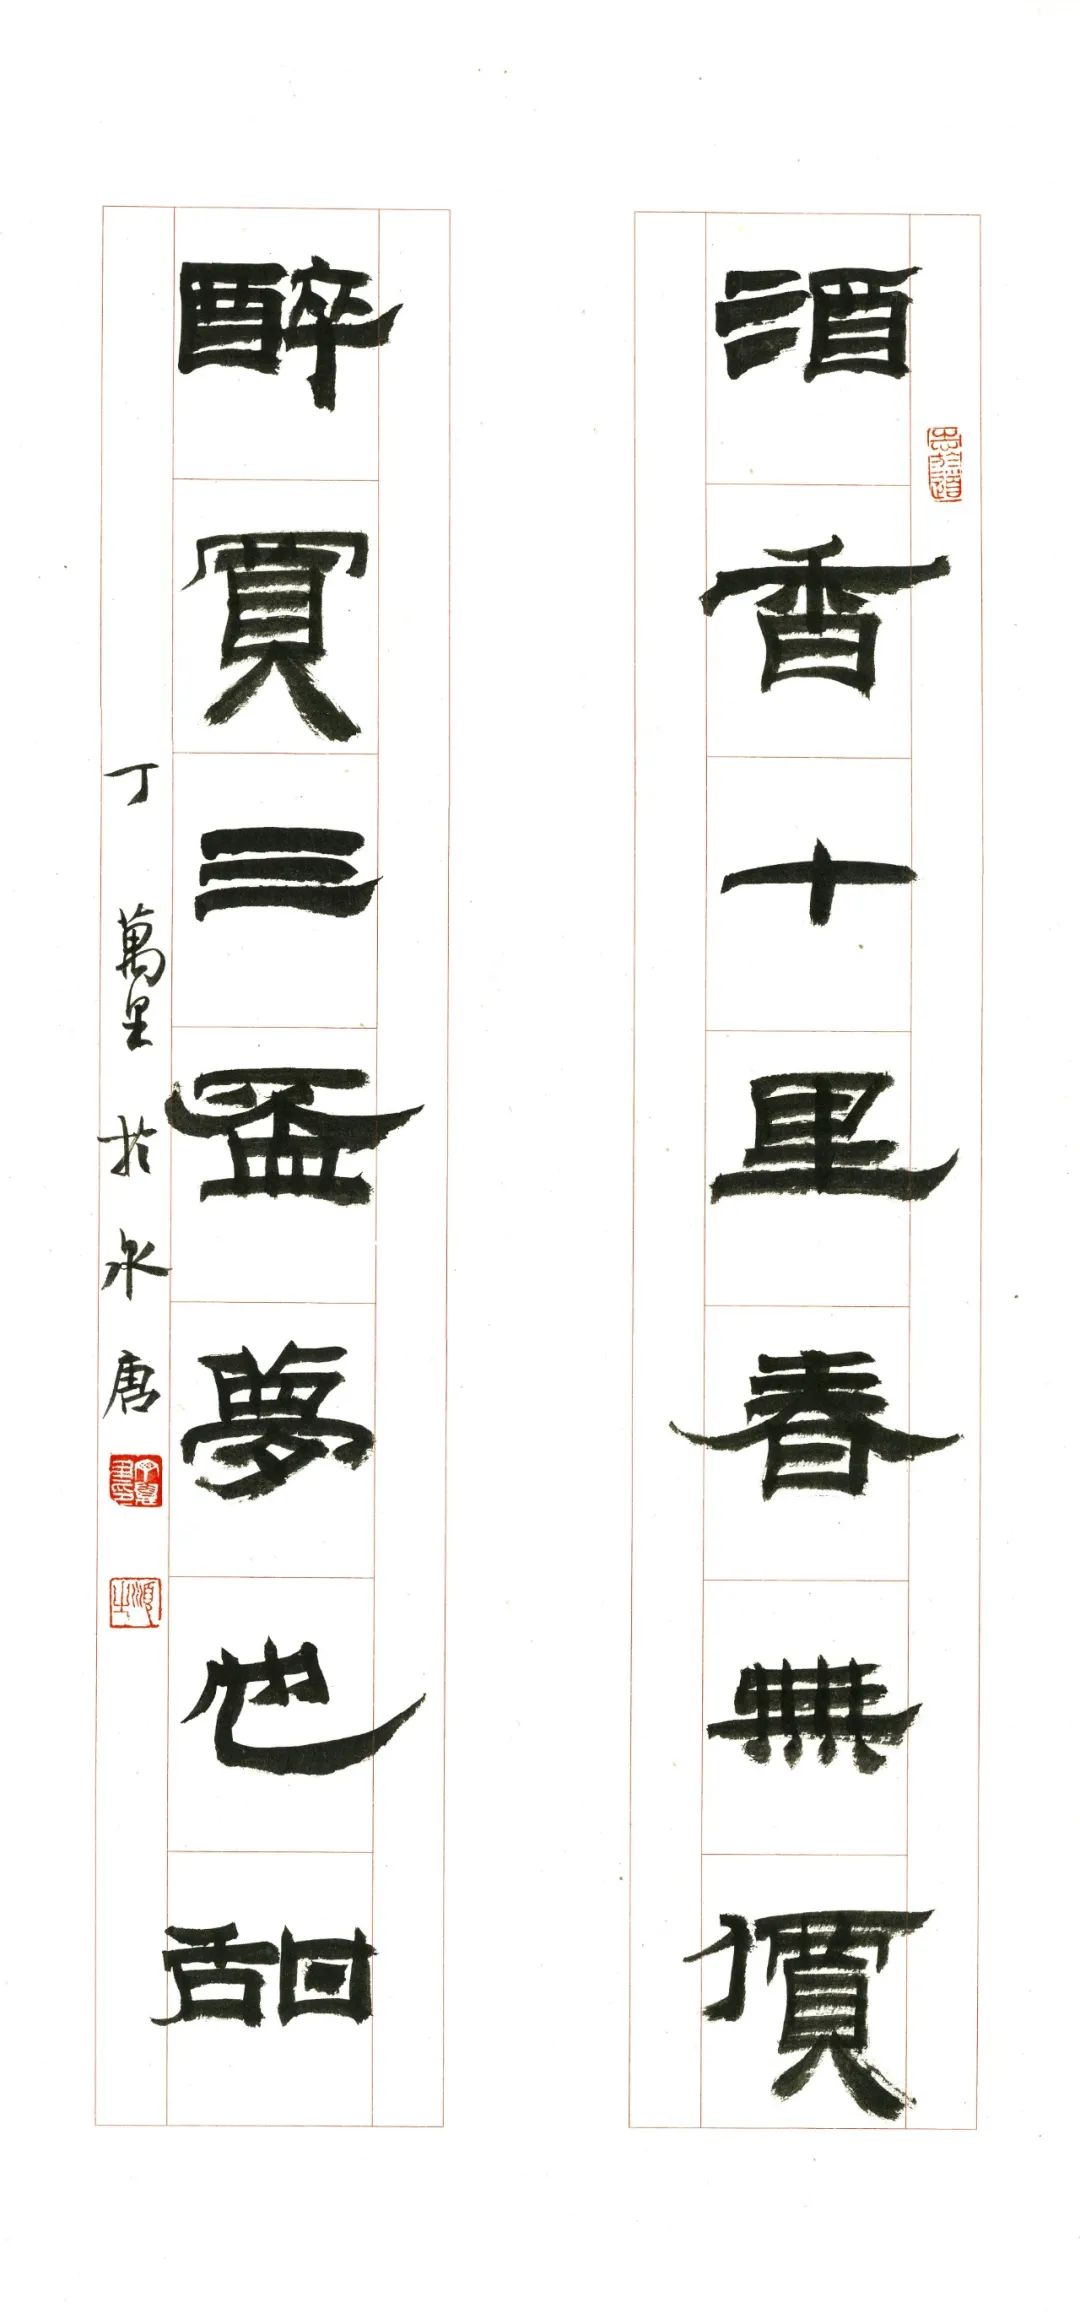 酒香十里春無價
醉買三盃夢也甜
丁萬里於泉唐